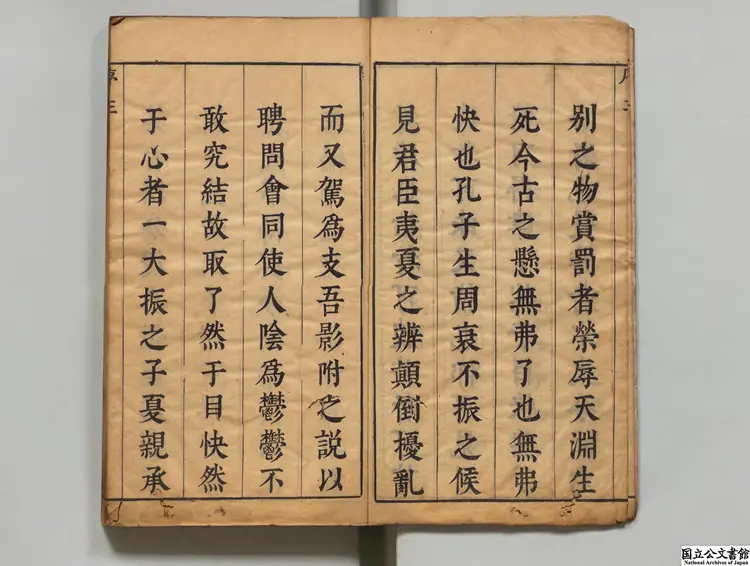 别之物賞罰者榮辱天淵生
死今古之懸無弗了也無弗
快也孔子生周衰不振之候
見君臣夷夏之辨顛倒擾亂
而又駕爲支吾影附之説以
聘問會同使人陰爲鬱鬱不
敢究結故取了然于目快然
于心者一大振之子夏親承
序三
国立公文書館
National Archives of Japan